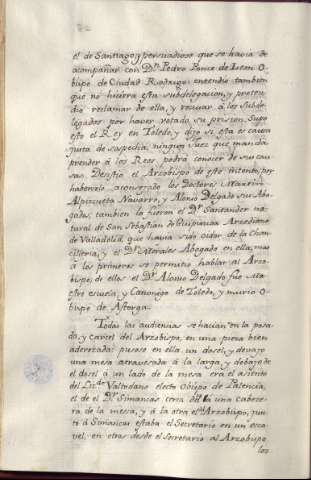 el de Santiago, y persuadiose que se havia de
acompañar con Dn. Pedro Ponce de Leon O-
bispo de Ciudad Rodrigo: entendio tambien
que no hiciera esta subdelegacion, y preten-
dio reclamar de ella, y recusar a los Subde-
legados por haver votado su prision. Supo
esto el Rey en Toledo, y dijo si esta es causa
justa de sospecha, ningun Juez que manda
prender á los Reos podrá conocer de sus cau-
sas. Desistio el Arzobispo de este intento, por
habercelo aconsejado los Doctores Martin
Alpizcueta Navarro, y Alonso Delgado sus Abo-
gados; tambien lo fueron el Dr. Santander na-
tural de San Sebastian de Guipuzcoa Arcediano
de Valladolid, que havia sido oidor de la Chan-
cilleria, y el Dr. Morales Abogado en ella; mas
á los primeros se permitio hablar al Arzo-
bispo; de ellos el Dr. Alonso Delgado fue Ma-
estre escuela y Canonigo de Toledo, y murio O-
bispo de Astorga.
Todas las audiencias se hacian en la posa-
da, y carcel del Arzobispo, en una pieza bien
aderezada: pusose en ella un dosel, y devajo
una mesa atravesada á la larga, y debajo de
el dosel á un lado de la mesa era el asiento
del Licdo. Valtodano electo Obispo de Palencia,
el de el Dr. Simancas cerca de la una cabece-
ra de la mesa, y á la otra el Arzobispo, jun-
to á Simancas estaba el Secretario en un esca-
vel; en otras desde el Secretario al Arzobispo
los